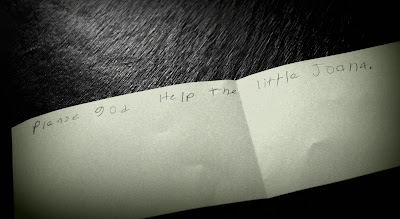 please god Help the little Joana.